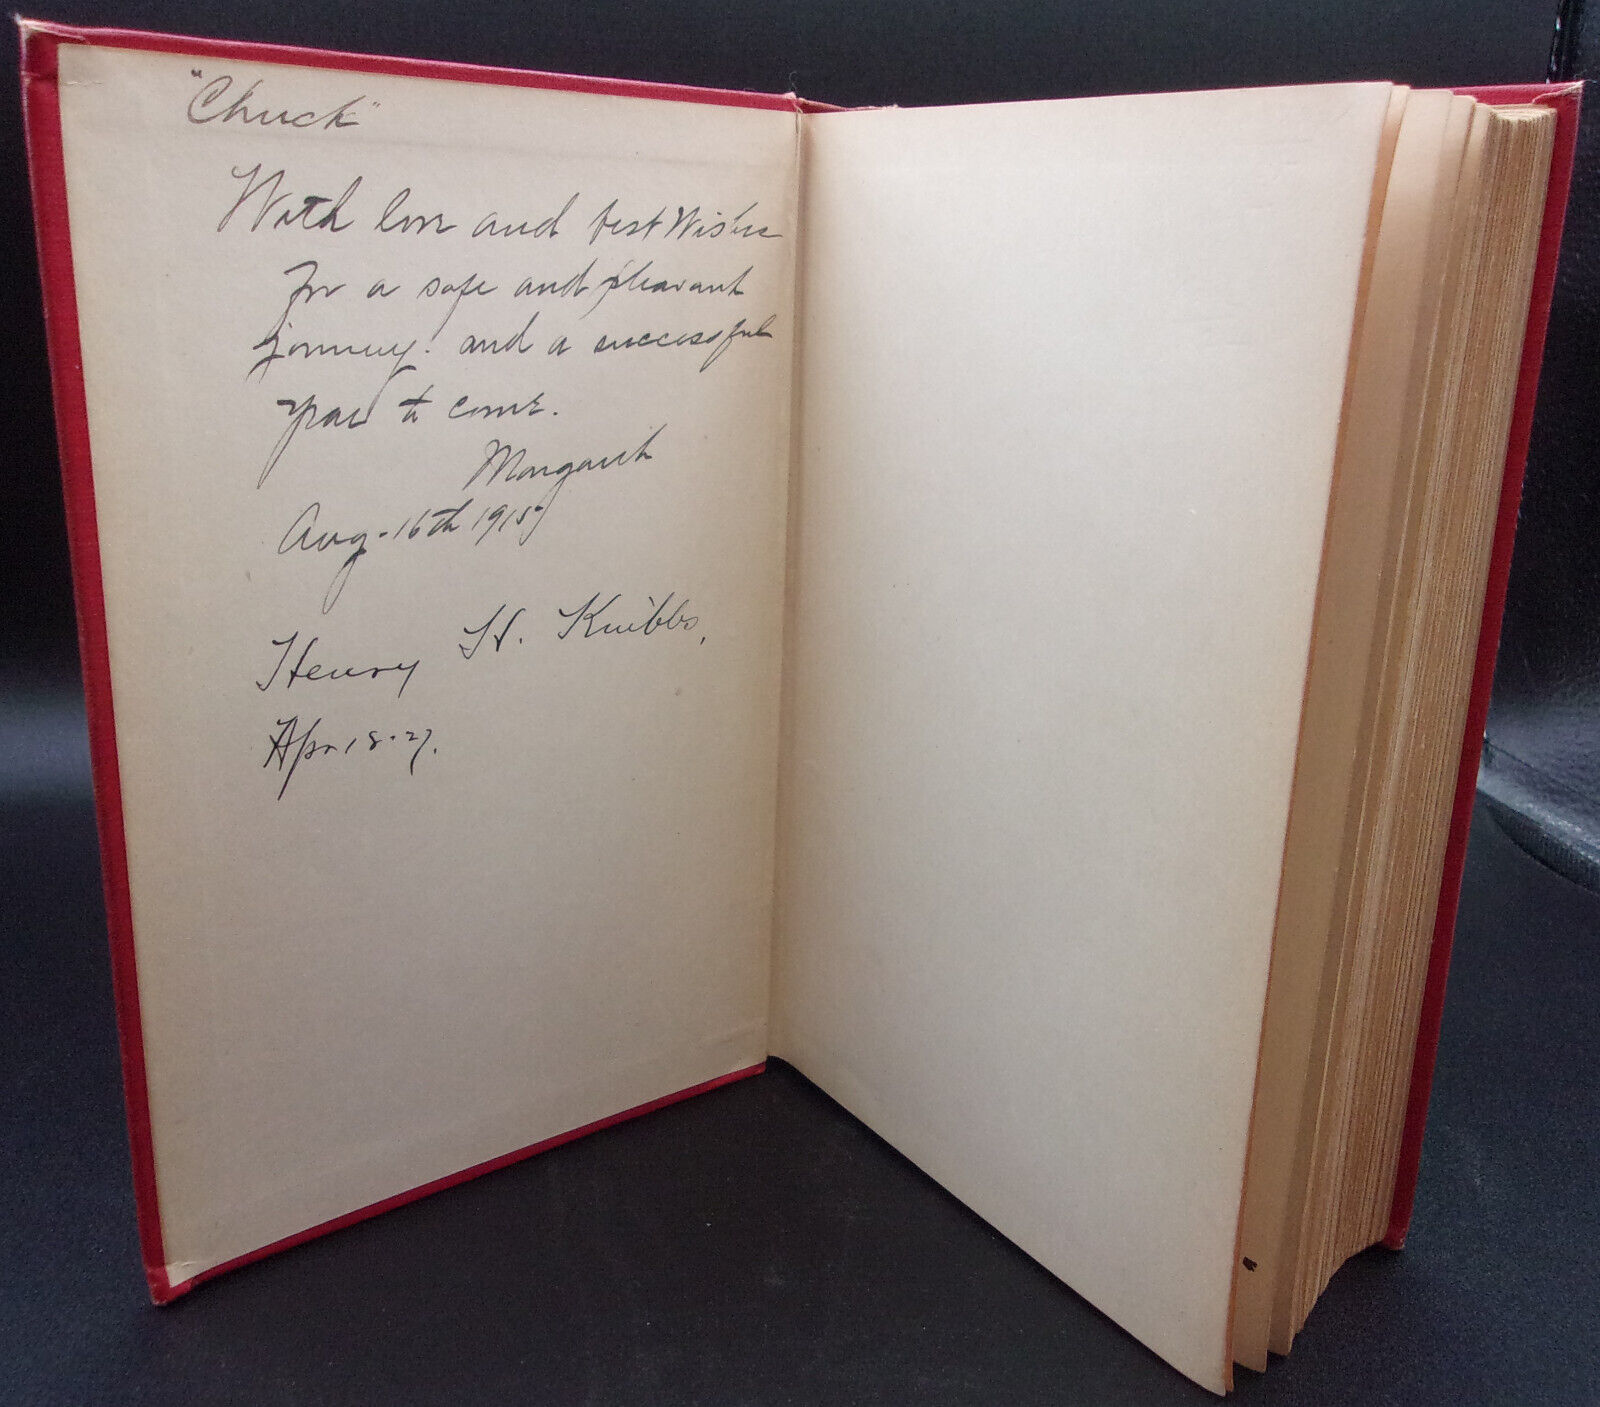 "Chuck"
With love and best Wishes
For a safe and pleasant
journey. and a successful
year to come.
Margaret
Aug-16th 1915
Henry H. Knibbs,
Apr 18-27.